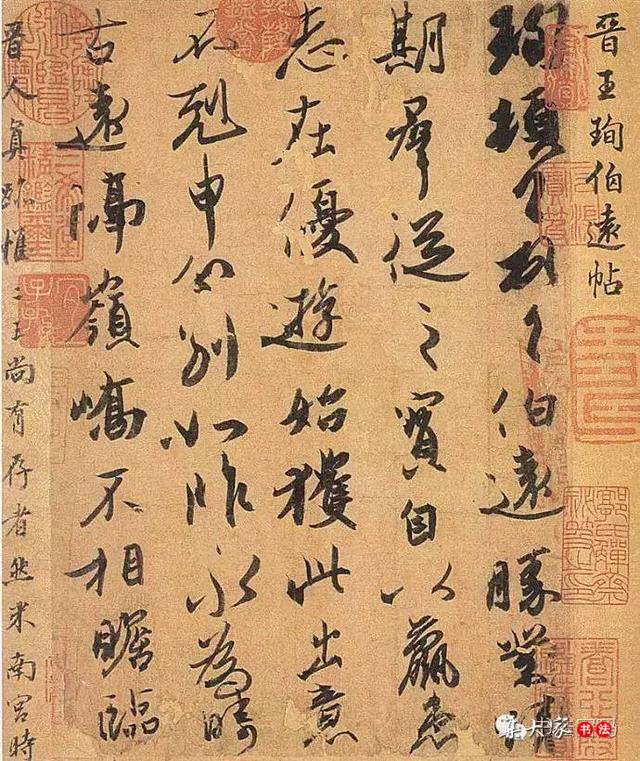 晉王珣伯遠帖
珣頓首頓首伯遠勝業情
期羣從之寶自以羸患
志在優遊始獲此出意
不剋申分別如昨永為疇
古遠隔嶺嶠不相瞻臨
晉人真跡惟二王尚有存者然米南宮時
书法